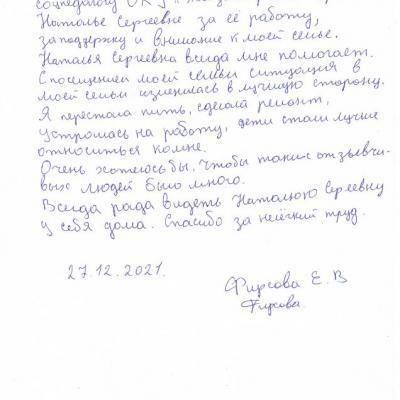 соцпедагогу
Наталье Сергеевне за её работу,
за поддержку и внимание к моей семье.
Наталья Сергеевна всегда мне помогает.
С посещением моей семьи ситуация в
моей семьи изменилась в лучшую сторону.
Я перестала пить, сделала ремонт,
устроилась на работу, дети стали лучше
относиться ко мне.
Очень хотелось бы, чтобы таких отзывчи-
вых людей было много.
Всегда рада видеть Наталью Сергеевну
у себя дома. Спасибо за нелёгкий труд.
27.12.2021.
Фирсова Е. В
Фирсова.